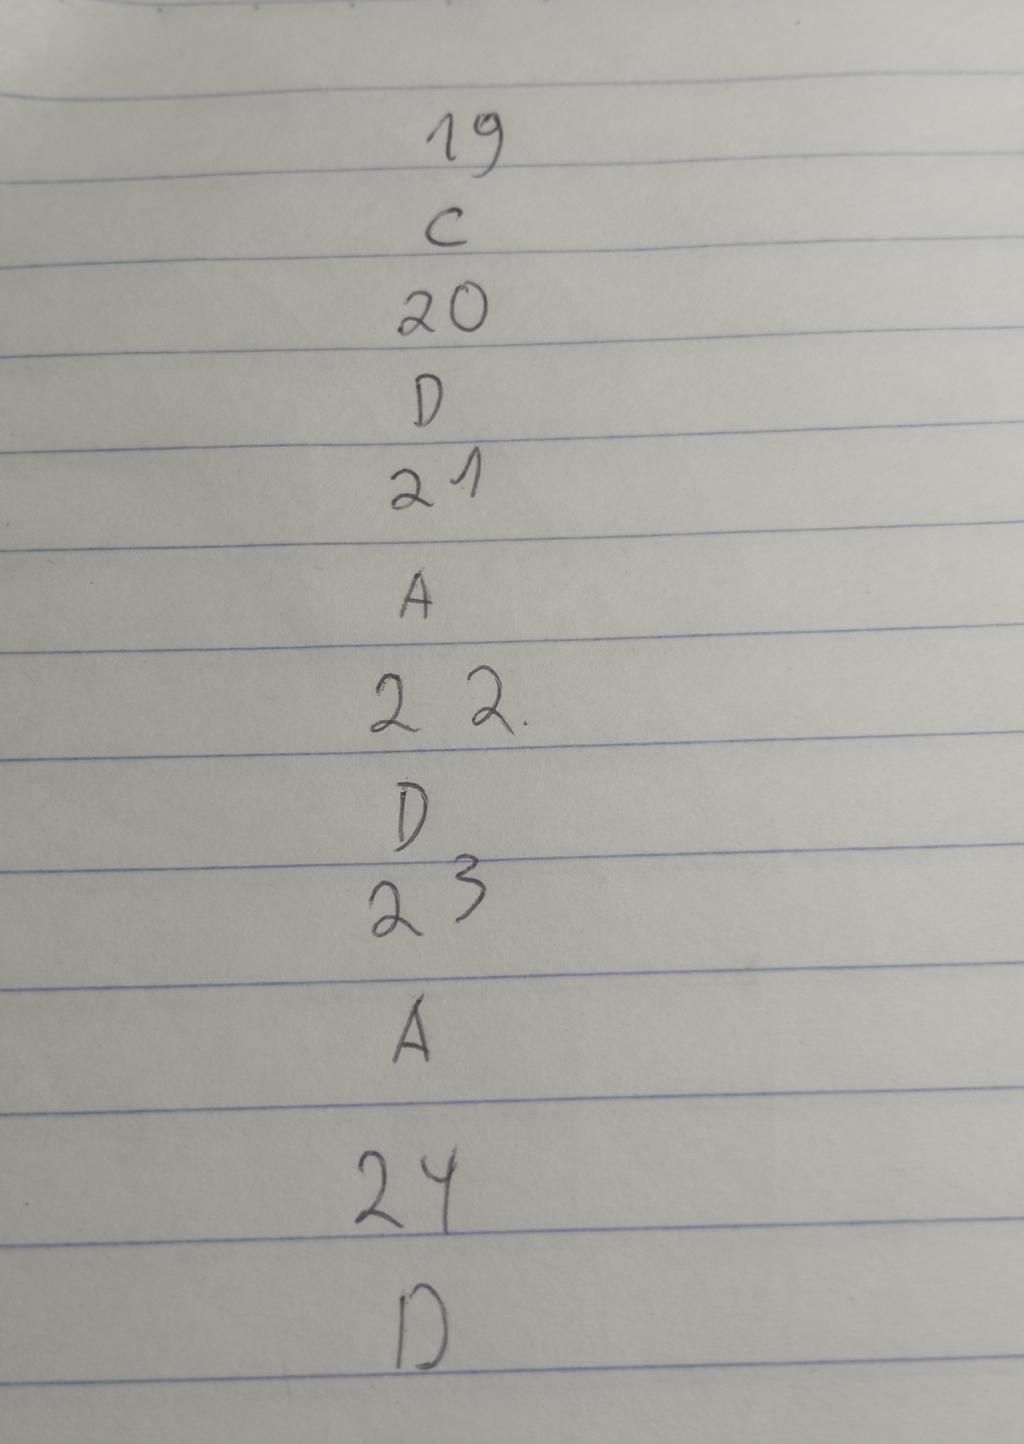 19
C
20
D
21
A
2 2.
D
23
A
24
D